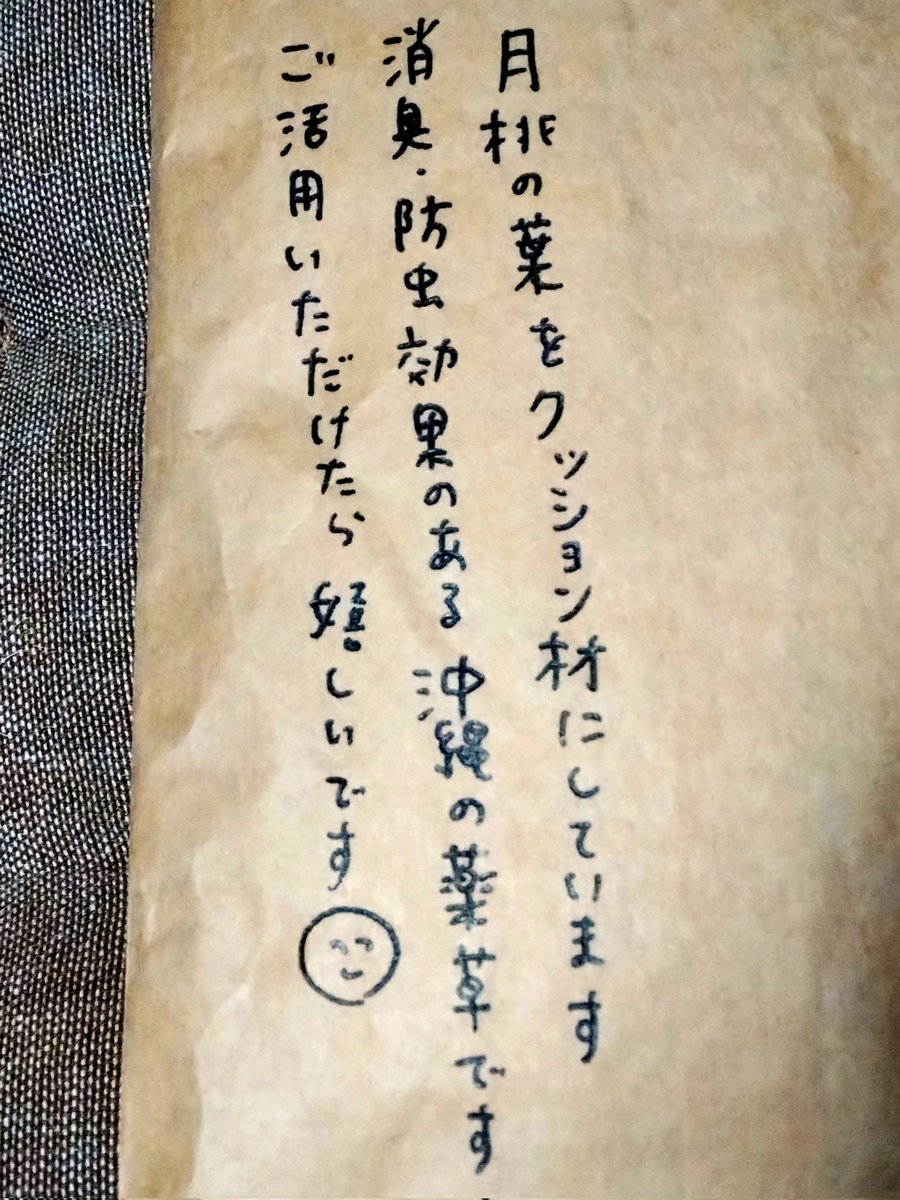 月桃の葉をクッション材にしています
消臭・防虫効果のある沖縄の薬草です
ご活用いただけたら嬉しいです